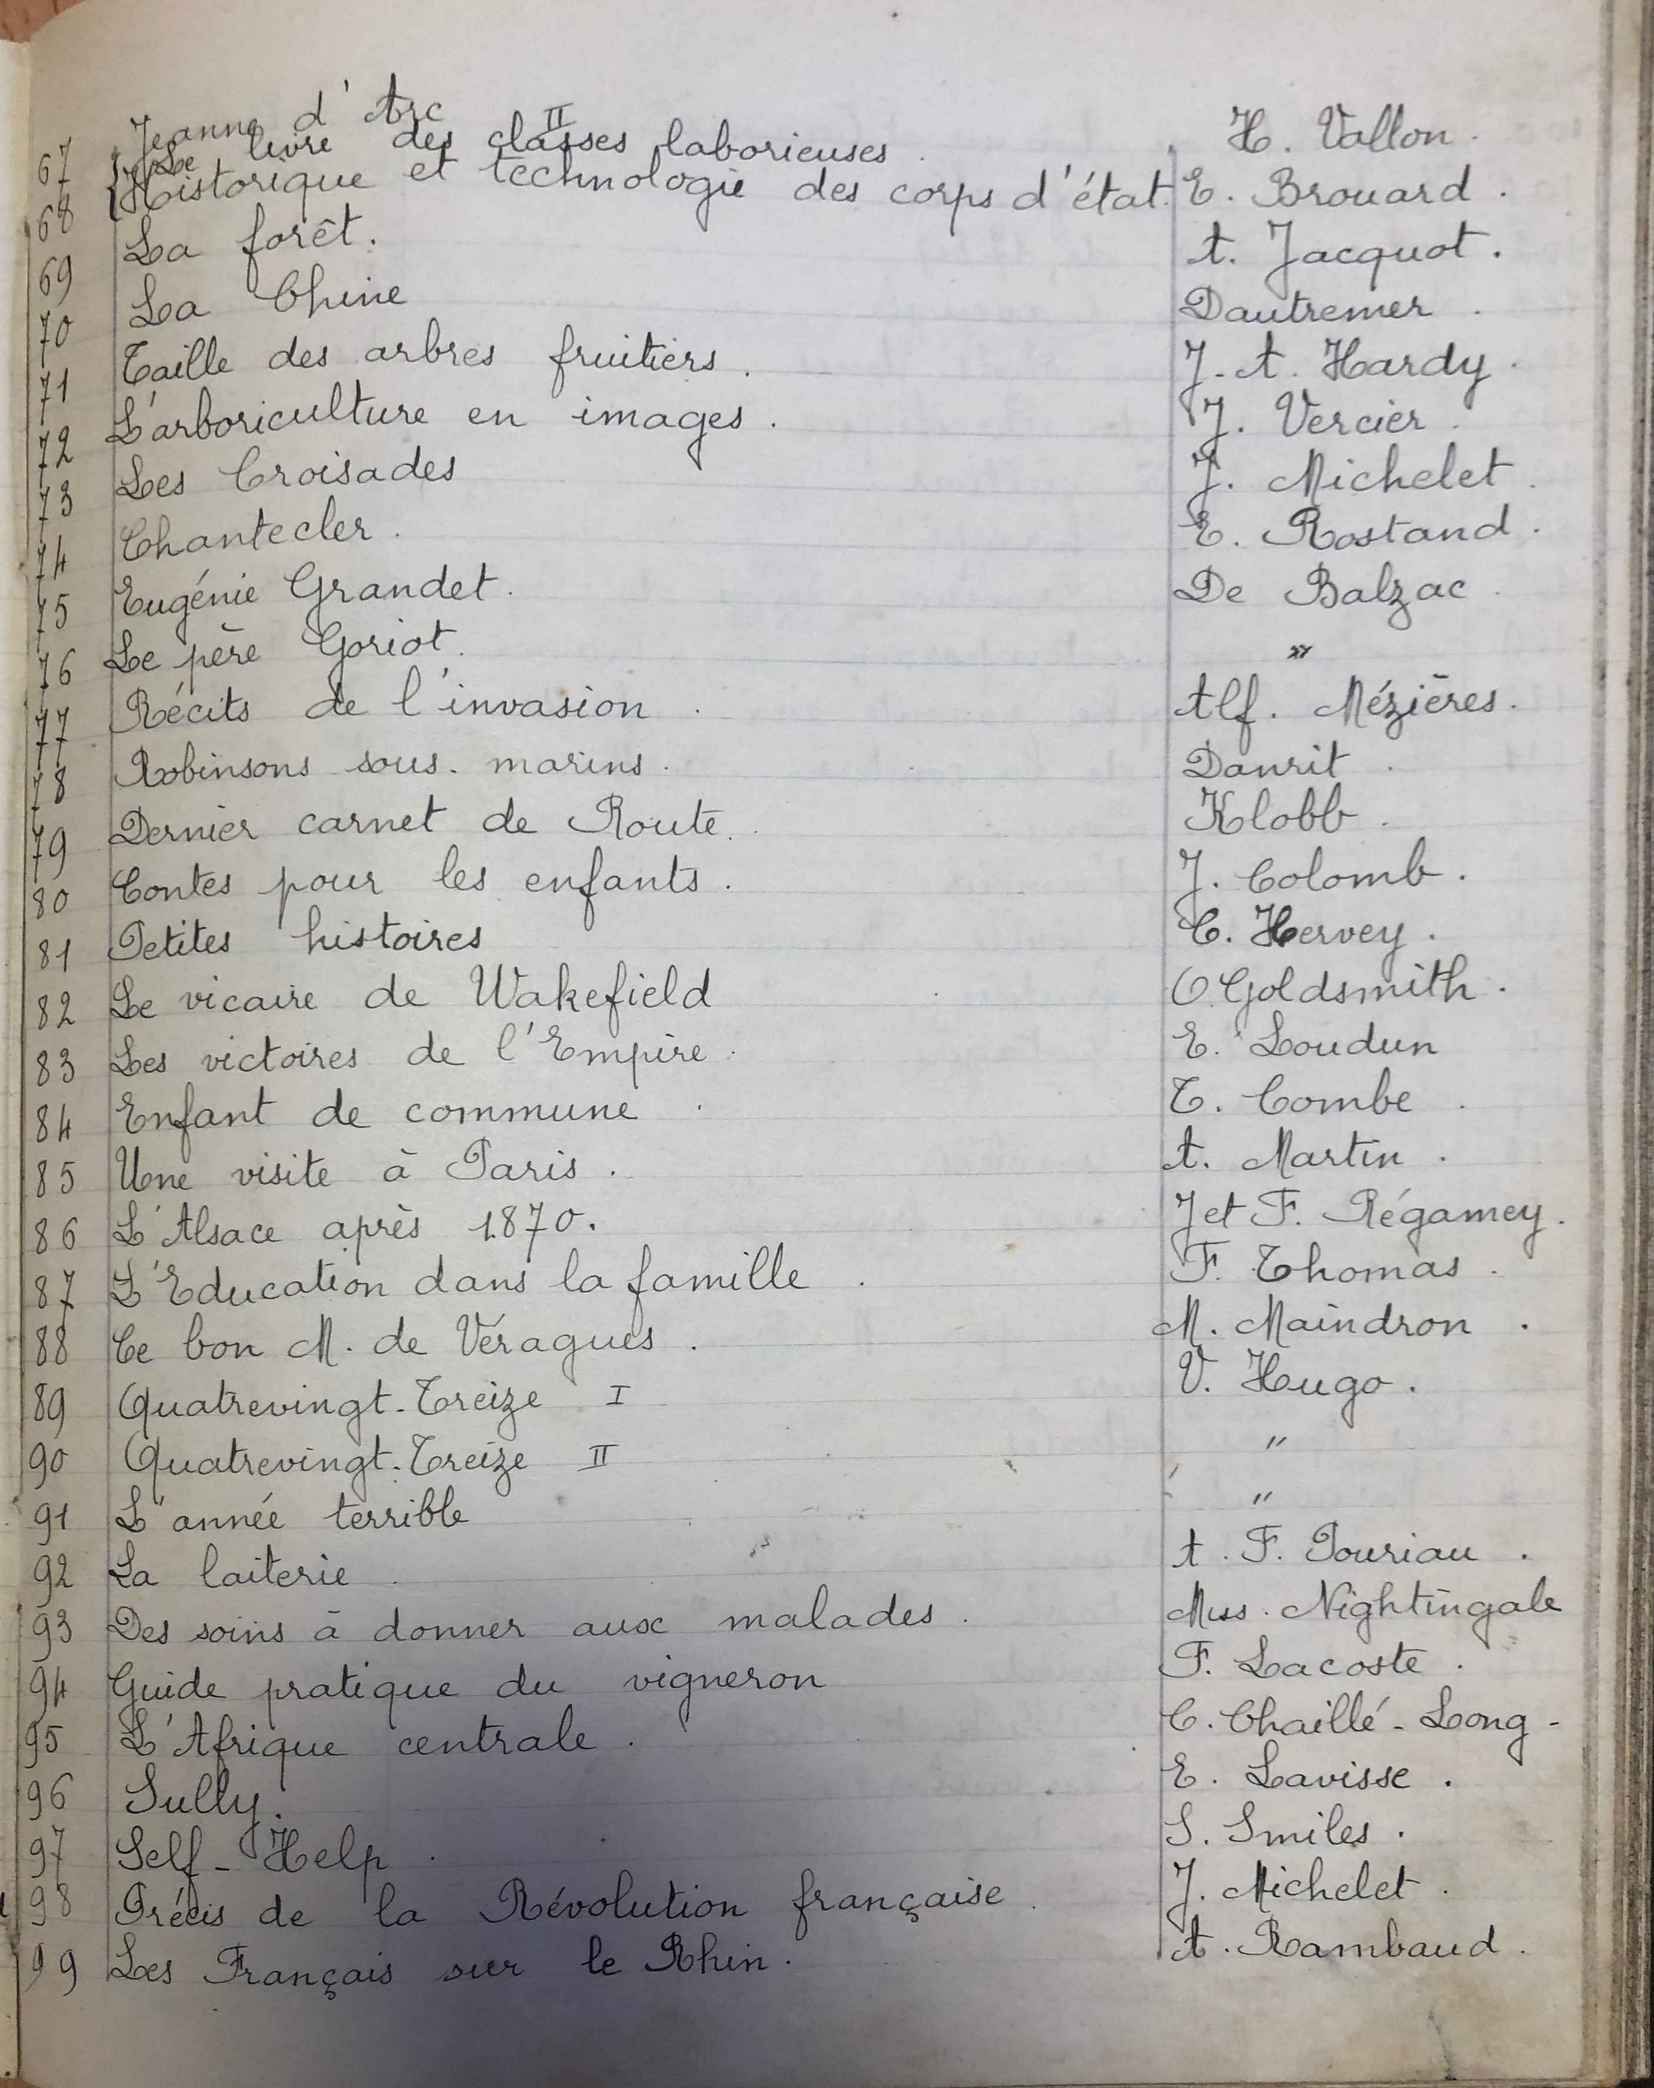 67 Jeanne d'Arc II H. Vallon.
68 Le livre des classes laborieuses.
Historique et technologie des corps d'état. E. Brouard.
69 La forêt. A. Jacquot.
70 La Chine Dautremer.
71 Taille des arbres fruitiers. J-A. Hardy.
72 L'arboriculture en images. J. Vercier.
73 Les Croisades J. Michelet.
74 Chantecler. E. Rostand.
75 Eugénie Grandet. De Balzac.
76 Le père Goriot. "
77 Récits de l'invasion. Alf. Mézières.
78 Robinsons sous-marins. Danrit.
79 Dernier carnet de Route. Klobb.
80 Contes pour les enfants. J. Colomb.
81 Petites histoires C. Hervey.
82 Le vicaire de Wakefield O. Goldsmith.
83 Les victoires de l'Empire. E. Loudun
84 Enfant de commune. T. Combe.
85 Une visite à Paris. A. Martin.
86 L'Alsace après 1870. J et F. Régamey.
87 L'Education dans la famille. F. Thomas.
88 Ce bon M. de Véragues. M. Maindron.
89 Quatrevingt-Treize I V. Hugo.
90 Quatrevingt-Treize II "
91 L'année terrible "
92 La laiterie. A. F. Pouriau.
93 Des soins à donner aux malades. Miss. Nightingale
94 Guide pratique du vigneron F. Lacoste.
95 L'Afrique centrale. C. Chaillé-Long-
96 Sully. E. Lavisse.
97 Self-Help. S. Smiles.
98 Précis de la Révolution française. J. Michelet.
99 Les Français sur le Rhin. A. Rambaud.